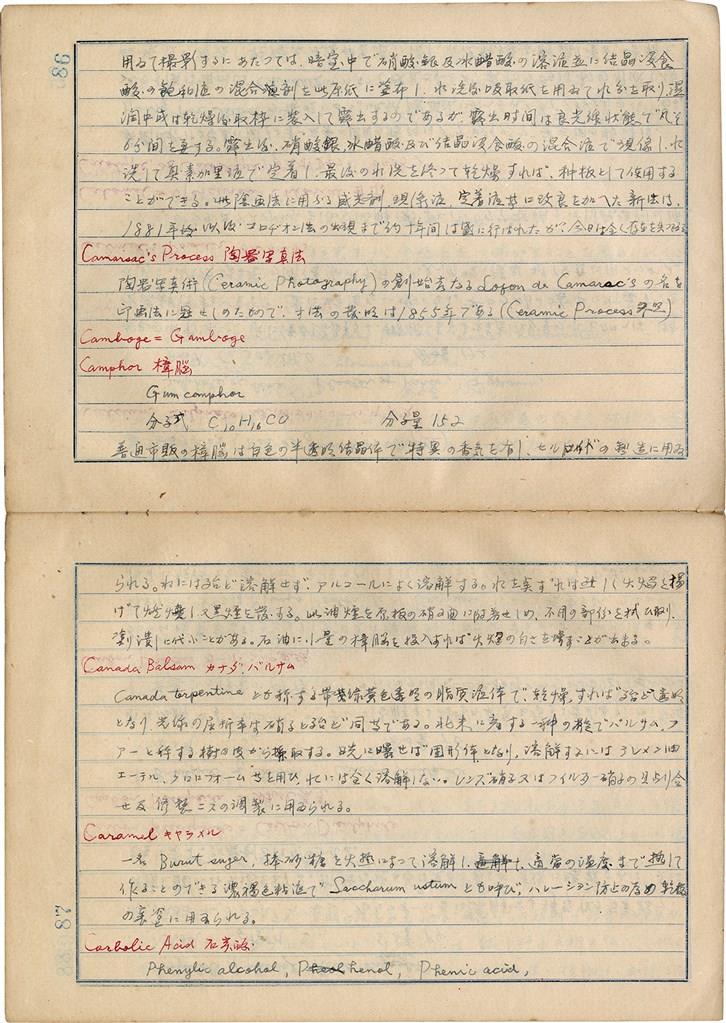 用ゐて撮影するにあたつては、暗室中で硝酸銀及氷醋酸の溶液並に結晶浸食
酸の飽和液の混合液剤を此原紙に塗布し、水洗後吸取紙を用ゐて水分を取り、湿
潤中或は乾燥後取枠に装入して露出するのであるが、露出時間は良光線状態で凡そ
6分間を要する。露出後、硝酸銀、氷醋酸及び結晶浸食酸の混合液で現像し、水
洗して臭素加里液で定着し、最後の水洗を終つて乾燥すれば、種板として使用する
ことができる。此陰画法に用ふる感光剤、現像液、定着液等に改良を加へた新法は、
1881年 以後 コロヂオン法の出現まで約十年間は 行はれたが、今日は全く
Camarsac's Process 陶器写真法
陶器写真術(Ceramic Photography)の創始者なる Lafon de Camarsac's の名を
印画法に冠せしめたもので、才法の発明は1855年である(Ceramic Process 参照)
Camboge = Gamboge
Camphor 樟脳
Gum camphor
分子式 C10H16CO 分子量 152
普通市販の樟脳は白色の半透明結晶体で特異の香気を有し、セルロイドの製造に用ゐ
られる。水には殆ど溶解せず、アルコールによく溶解する。 火焔を揚
げて燃焼し黒煙を発する。此油煙を原板の硝子面に附着せしめ、不用の部分を拭ひ取り、
に代ふことがある。石油に小量の樟脳を投入すれば火焔の白さを増すことが出来る。
Canada Balsam カナダ・バルサム
Canada terpentine とも称する帯黄緑黄色透明の脂質液体で、乾燥すれば殆ど透明
となり、光線の屈折率は硝子と殆ど同等である。北米に産する一種の樅でバルサム、フ
アーと称する樹の皮から採取する。日光に曝せば固形体となり、溶解するには テレメン油
エーテル、クロロフォーム等を用ひ、水には全く溶解しない。レンズ硝子又はフイルター硝子の貝より合
せ及修整ニスの調製に用ゐられる。
Caramel キヤラメル
一名 Burnt suger, 棒砂糖を火熱によつて溶解し、適当の温度まで熱して
作ることのできる濃褐色粘液で Saccharum ustum とも呼び、ハレーション防止の為め乾板
の裏塗に用ゐられる。
Carbolic Acid 石炭酸
Phenylic alcohol, Phenol, Phenic acid,